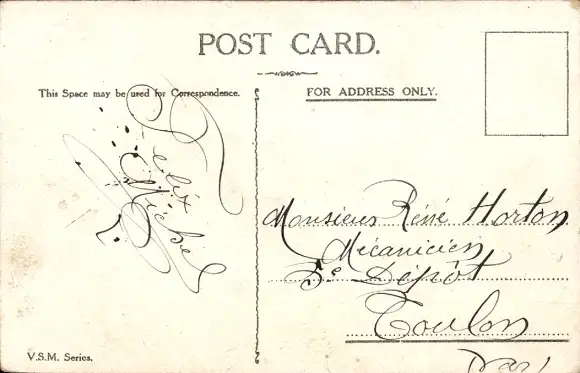 POST CARD.
This Space may be used for Correspondence.
FOR ADDRESS ONLY.
Felix
Michel
Monsieur Réné Horton
Mécanicien
5e Dépôt
Toulon
Var
V.S.M. Series.